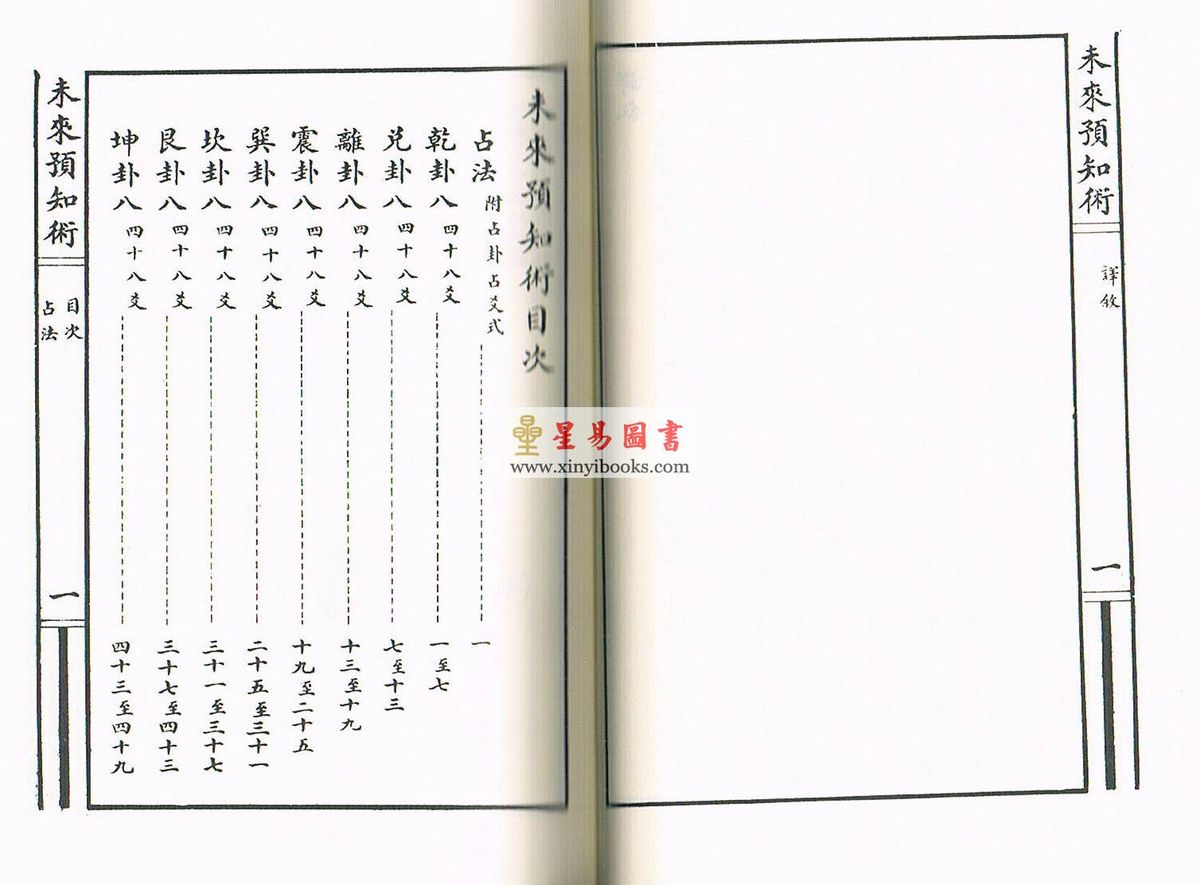 未來預知術
譯敘
一
未來預知術目次
占法 附占卦占爻式 一
乾卦八 四十八爻 一至七
兌卦八 四十八爻 七至十三
離卦八 四十八爻 十三至十九
震卦八 四十八爻 十九至二十五
巽卦八 四十八爻 二十五至三十一
坎卦八 四十八爻 三十一至三十七
艮卦八 四十八爻 三十七至四十三
坤卦八 四十八爻 四十三至四十九
未來預知術
目次
占法
一
星易圖書
www.xinyibooks.com